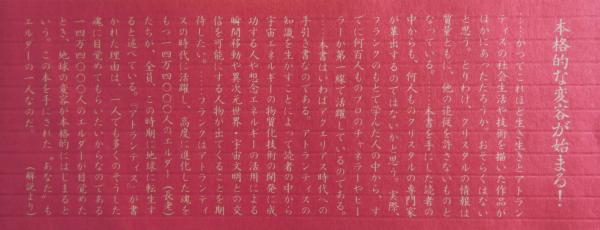 本格的な変容が始まる!
……かってこれほど生き生きとアトラン
ティスの社会生活や技術を描いた作品が
ほかにあっただろうか。おそらくはない
と思う。とりわけ、クリスタルの情報は
質量ともに、他の追従を許さないものと
なっている。……本書を手にした読者の
中からも、何人ものクリスタルの専門家
が輩出するのではないかと思う。実際、
フランクのもとで学んだ人の中から、す
でに何百人ものプロのチャネラーやヒー
ラーが第一線で活躍しているのである。
……本書はいわばアクエリアス時代への
手引き書なのである。アトランティスの
知識を生かすことによって読者の中から
宇宙エネルギーの物質化技術の開発に成
功する人や想念エネルギーの活用による
瞬間移動や異次元世界・宇宙文明との交
信を可能にする人物が出てくることを期
待したい。……フランクはアトランティ
スの時代に活躍し、高度に進化した魂を
もつ一四万四〇〇〇人のエルダー(長老)
たちが、全員、この時期に地球に転生す
ると述べている。『アトランティス』が書
かれた理由は、一人でも多くのそうした
魂に目覚めてもらいたいからなのである
一四万四〇〇〇人のエルダーが目覚めた
とき、地球の変容が本格的にはじまると
いう。この本を手にされた〝あなた〟も
エルダーの一人なのだ。
(解説より)